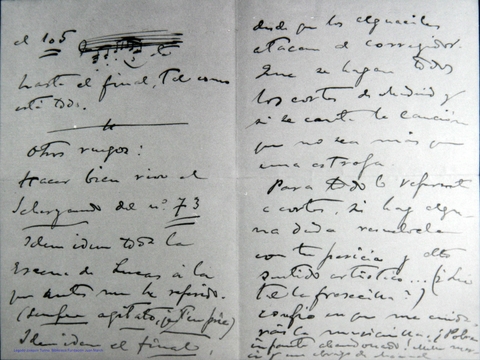 el 105
hasta el final, tal como
está
Otros ruegos:
Hacer bien vivo el
Scherzando del nº 73
Idem idem toda la
Escena de Lucas á la
que antes me he referido.
(siempre agitato,
Idem idem el final
desde que los alguaciles
atacan al corregidor.
Que se hagan todos
los cortes de Madrid y
si se canta la canción
que no sea más que
una estrofa.
Para todo lo referente
a cortes, si hay algu-
na duda resuelvela
con tu pericia y alto
sentido artístico...
te la
confío en que me cuida-
rás la musiquilla. ¡Pobre
infante abandonado,